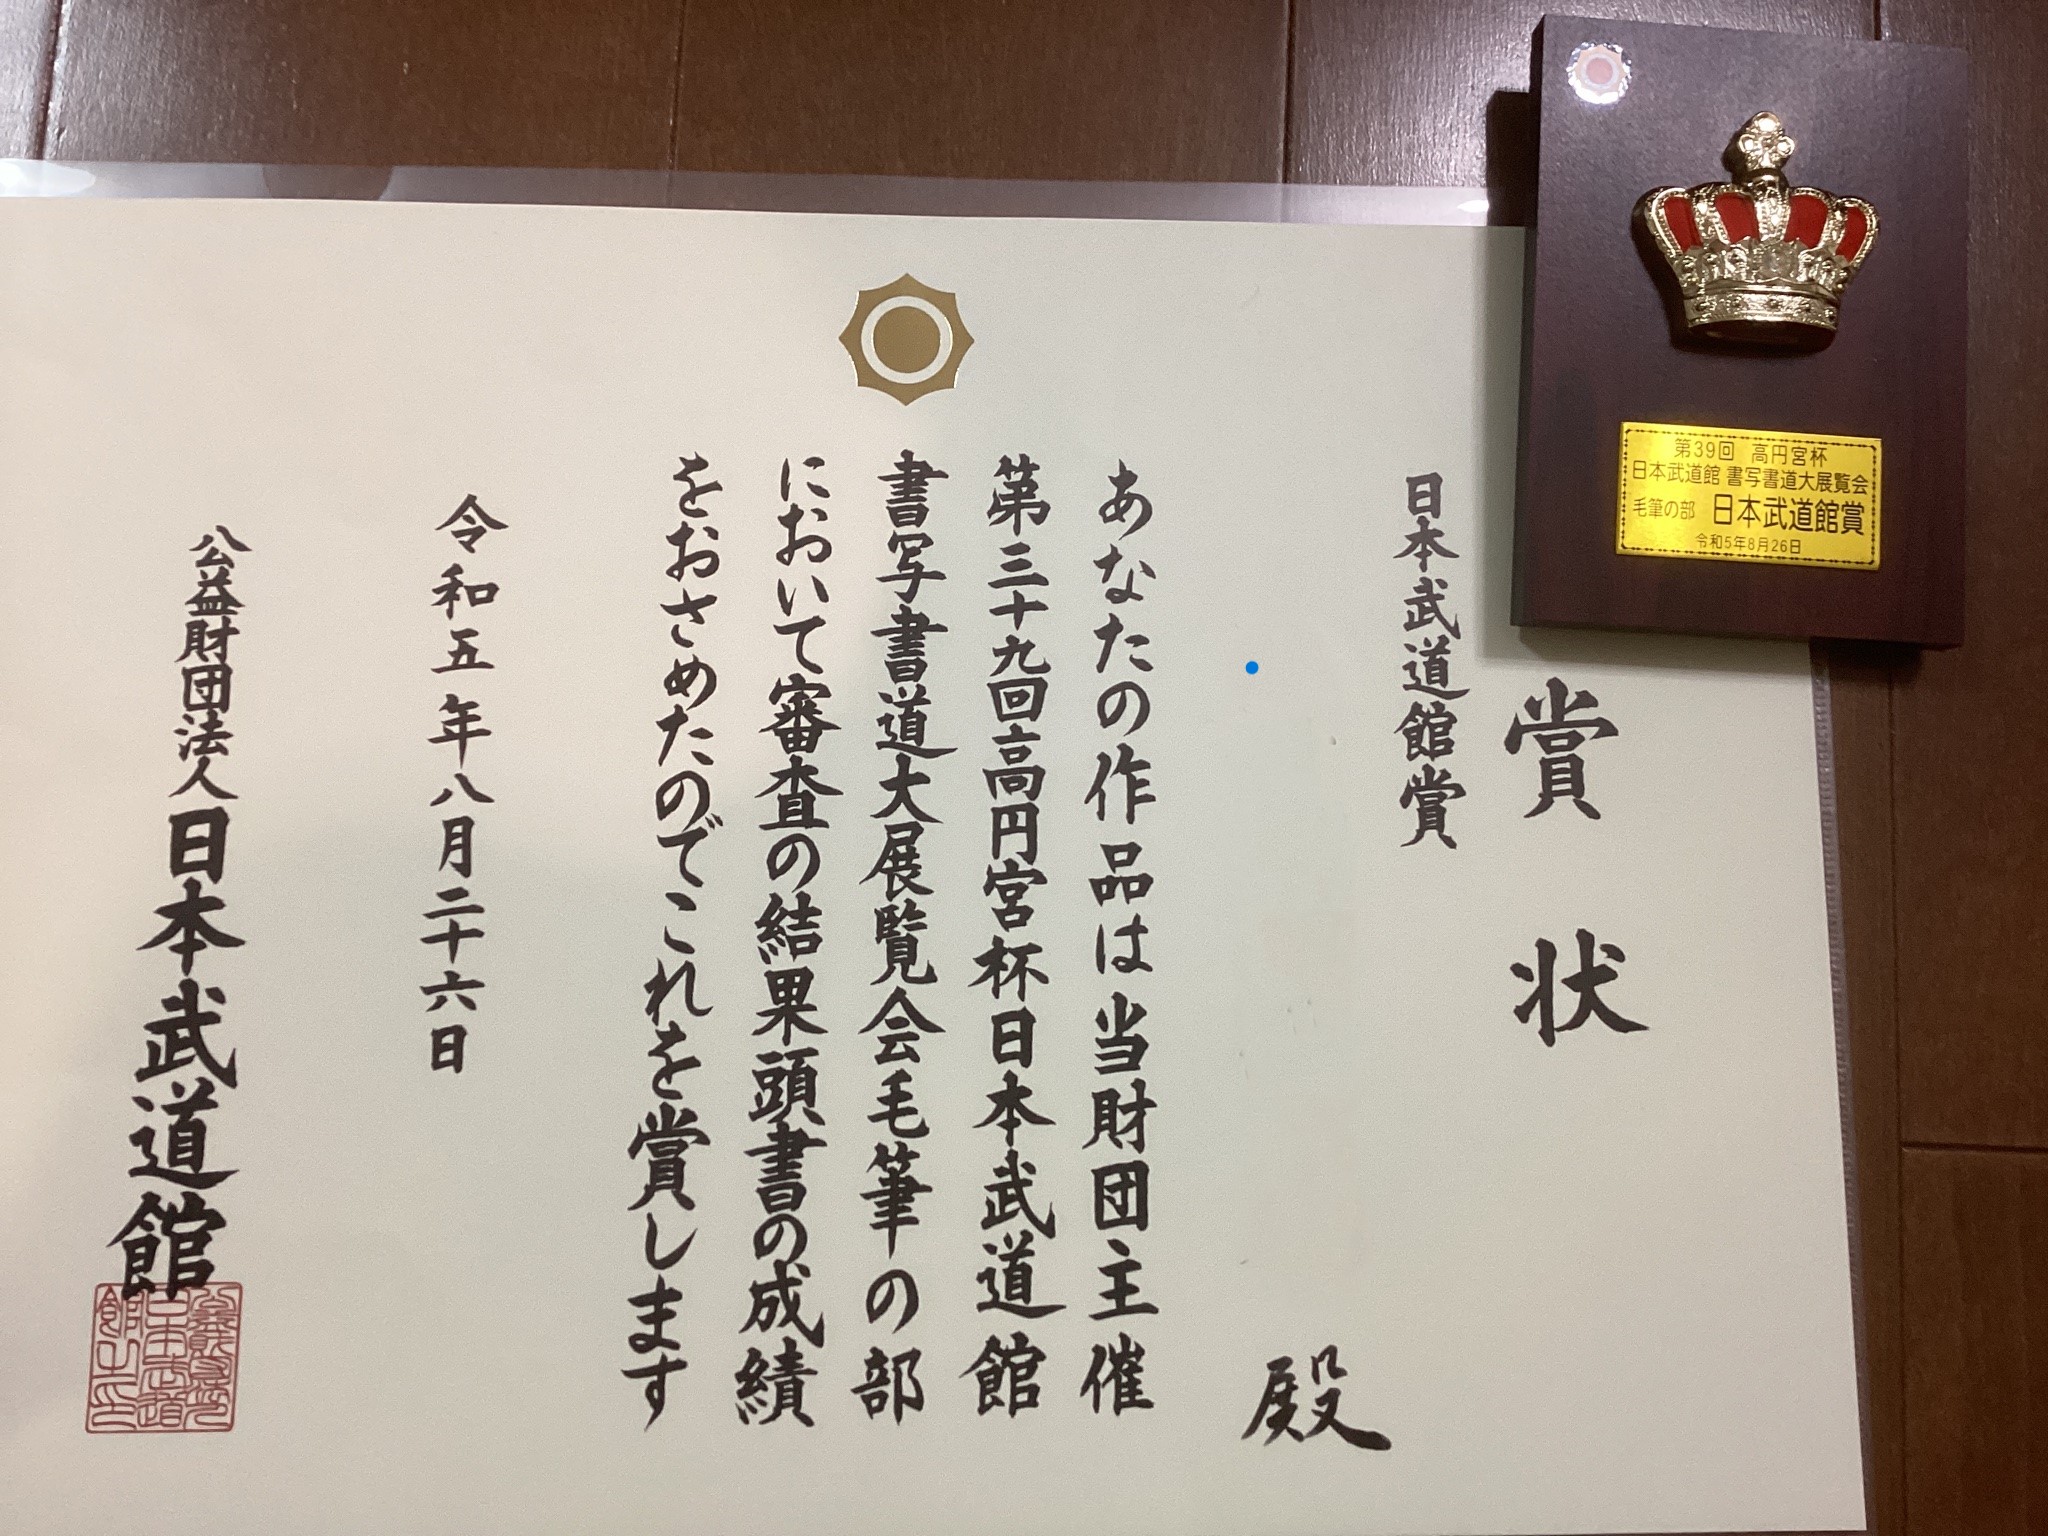 賞状
日本武道館賞
殿
あなたの作品は当財団主催
第三十九回高円宮杯日本武道館
書写書道大展覧会毛筆の部
において審査の結果頭書の成績
をおさめたのでこれを賞します
令和五年八月二十六日
公益財団法人日本武道館
第39回 高円宮杯
日本武道館 書写書道大展覧会
毛筆の部 日本武道館賞
令和5年8月26日